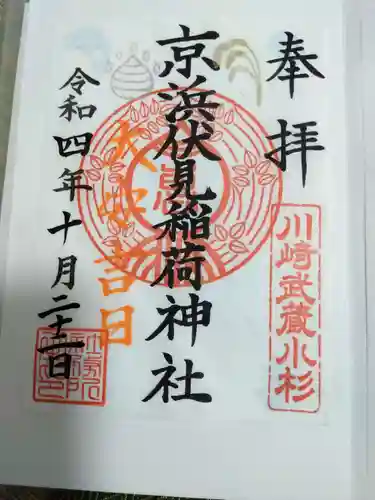 奉拝
川崎武蔵小杉
京浜伏見稲荷神社
大安吉日
令和四年十月二十一日